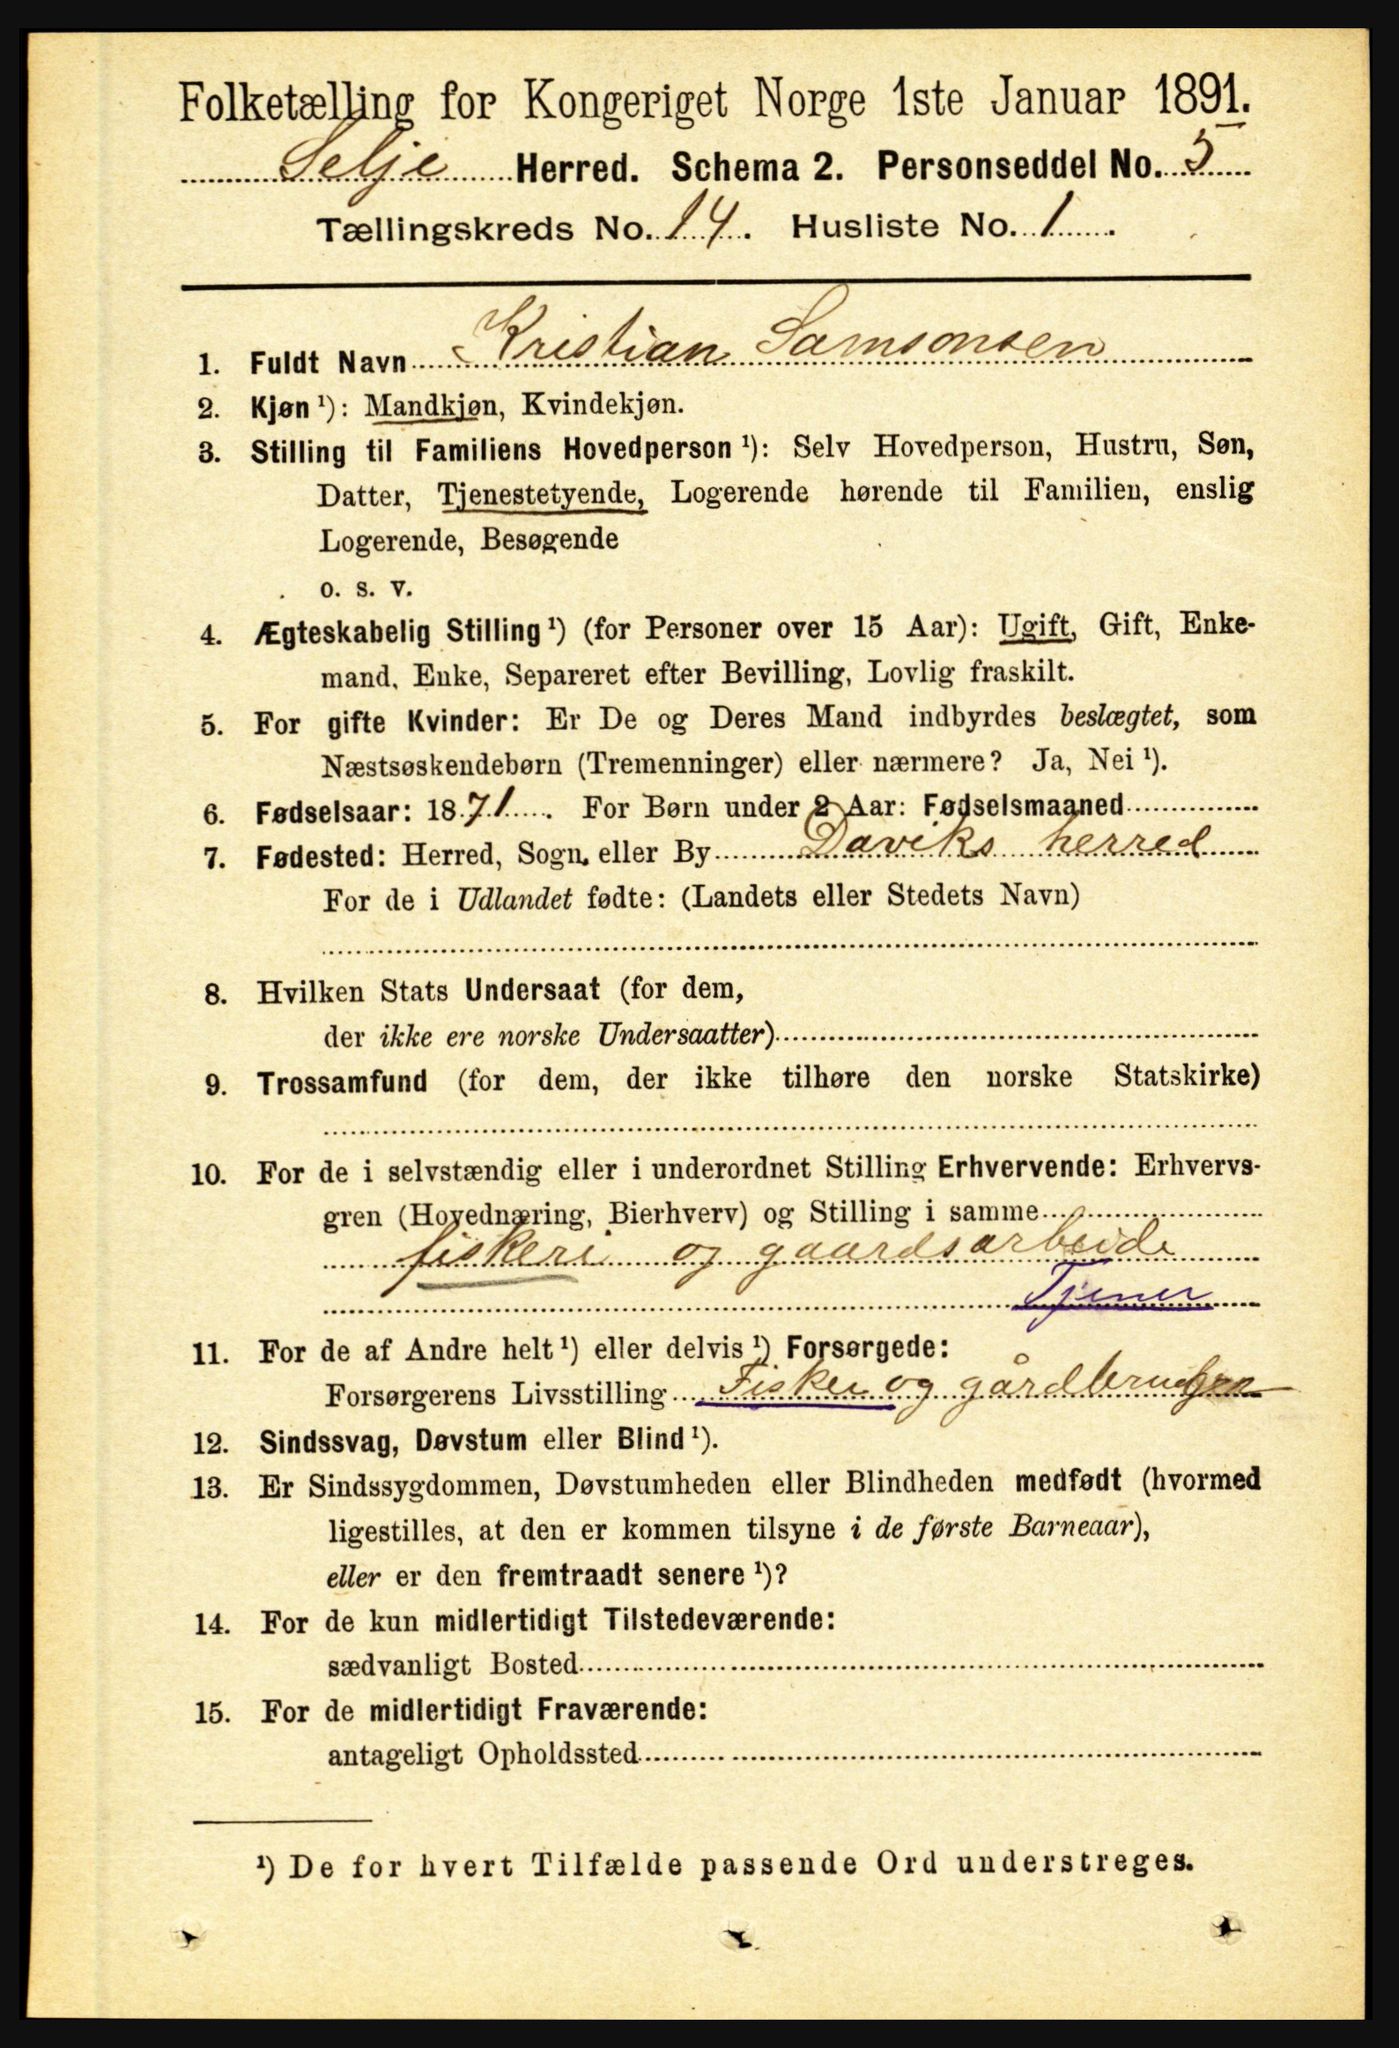 Folketælling for Kongeriget Norge 1ste Januar 1891.
Selje Herred. Schema 2. Personseddel No. 5
Tællingskreds No. 14. Husliste No. 1.
1. Fuldt Navn Kristian Samsonsen
2. Kjøn ¹): Mandkjøn, Kvindekjøn.
3. Stilling til Familiens Hovedperson ¹): Selv Hovedperson, Hustru, Søn,
Datter, Tjenestetyende, Logerende hørende til Familien, enslig
Logerende, Besøgende
o. s. v.
4. Ægteskabelig Stilling ¹) (for Personer over 15 Aar): Ugift, Gift, Enke-
mand, Enke, Separeret efter Bevilling, Lovlig fraskilt.
5. For gifte Kvinder: Er De og Deres Mand indbyrdes beslægtet, som
Næstsøskendebørn (Tremenninger) eller nærmere? Ja, Nei ¹).
6. Fødselsaar: 1871. For Børn under 2 Aar: Fødselsmaaned
7. Fødested: Herred, Sogn, eller By Daviks herred
For de i Udlandet fødte: (Landets eller Stedets Navn)
8. Hvilken Stats Undersaat (for dem,
der ikke ere norske Undersaatter)
9. Trossamfund (for dem, der ikke tilhøre den norske Statskirke)
10. For de i selvstændig eller i underordnet Stilling Erhvervende: Erhvervs-
gren (Hovednæring, Bierhverv) og Stilling i samme
fiskeri og gaardsarbeide
Tjener
11. For de af Andre helt ¹) eller delvis ¹) Forsørgede:
Forsørgerens Livsstilling Fisker og
12. Sindssvag, Døvstum eller Blind ¹).
13. Er Sindssygdommen, Døvstumheden eller Blindheden medfødt (hvormed
ligestilles, at den er kommen tilsyne i de første Barneaar),
eller er den fremtraadt senere ¹)?
14. For de kun midlertidigt Tilstedeværende:
sædvanligt Bosted
15. For de midlertidigt Fraværende:
antageligt Opholdssted
¹) De for hvert Tilfælde passende Ord understreges.